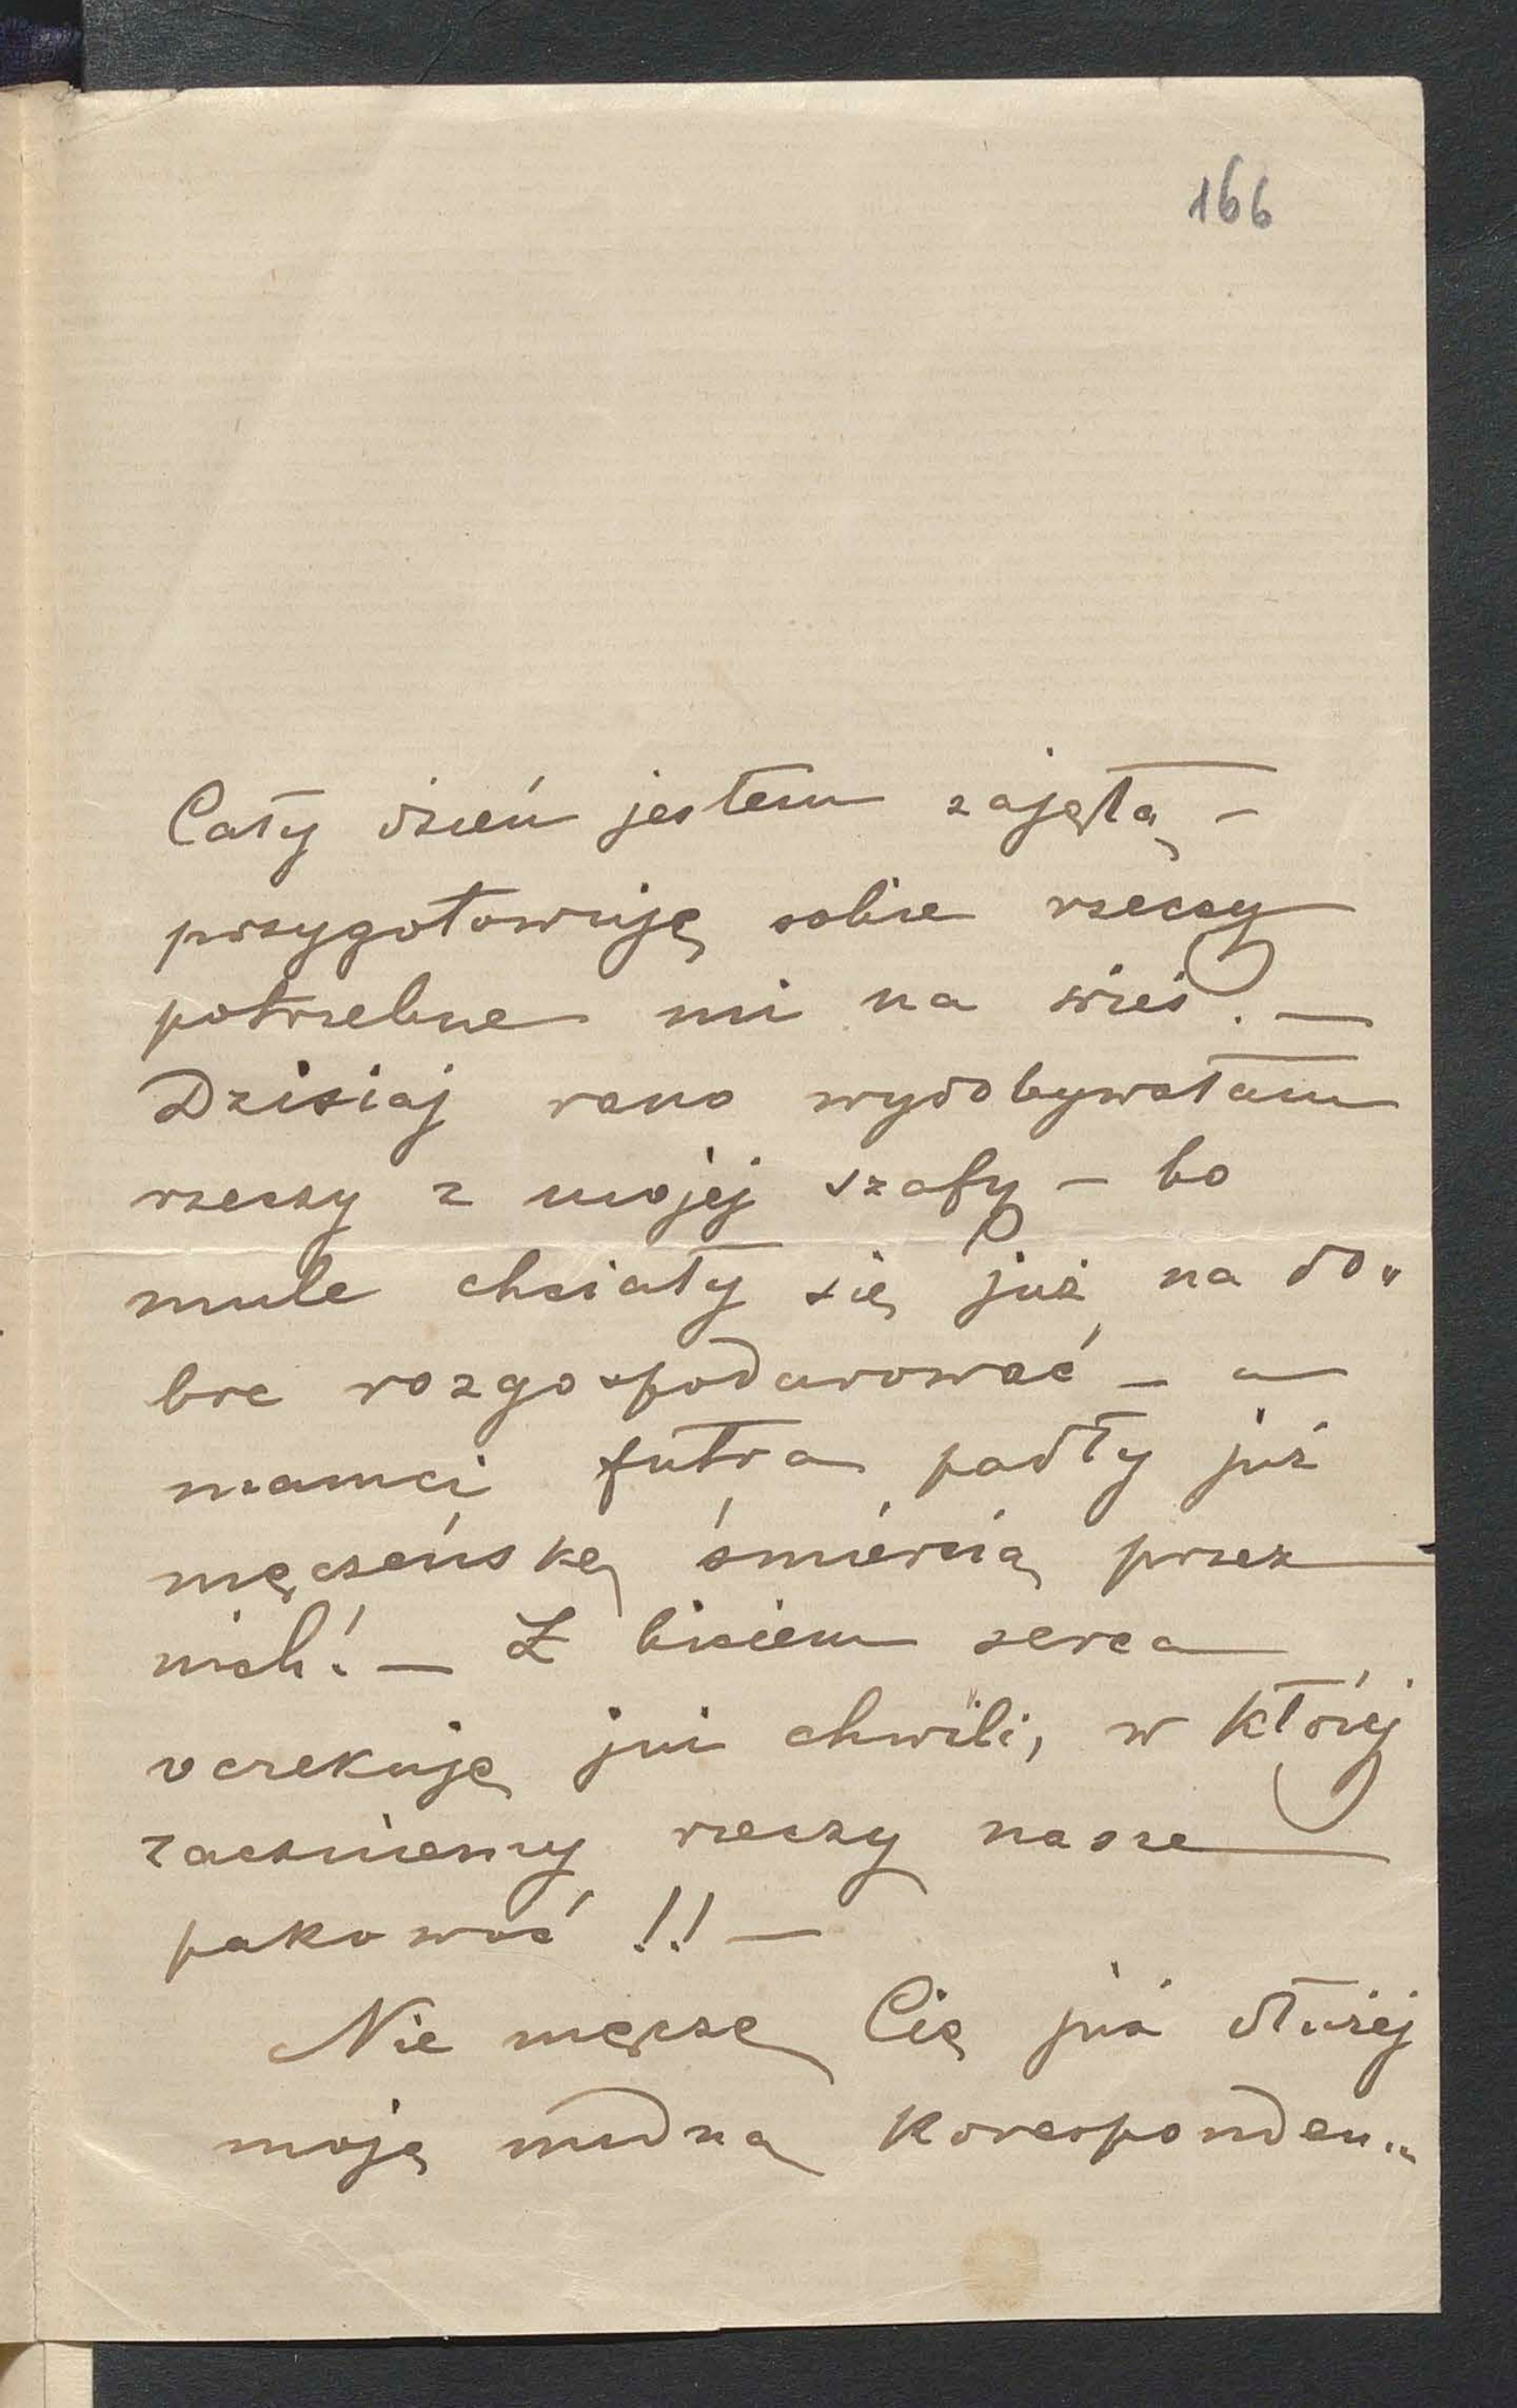 166
Cały dzień jestem zajętą –
przygotowuję sobie rzeczy
potrzebne mi na wieś. —
Dzisiaj rano wydobywałam
rzeczy z mojej szafy – bo
mule chciały się już na do„
bre rozgospodarować – a
mamci futra padły już
męczeńską śmiercią przez
nich! — Z biciem serca
oczekuję już chwili, w której
zaczniemy rzeczy nasze
pakować !! —
Nie męczę Cię już dłużej
moją nudną koresponden„